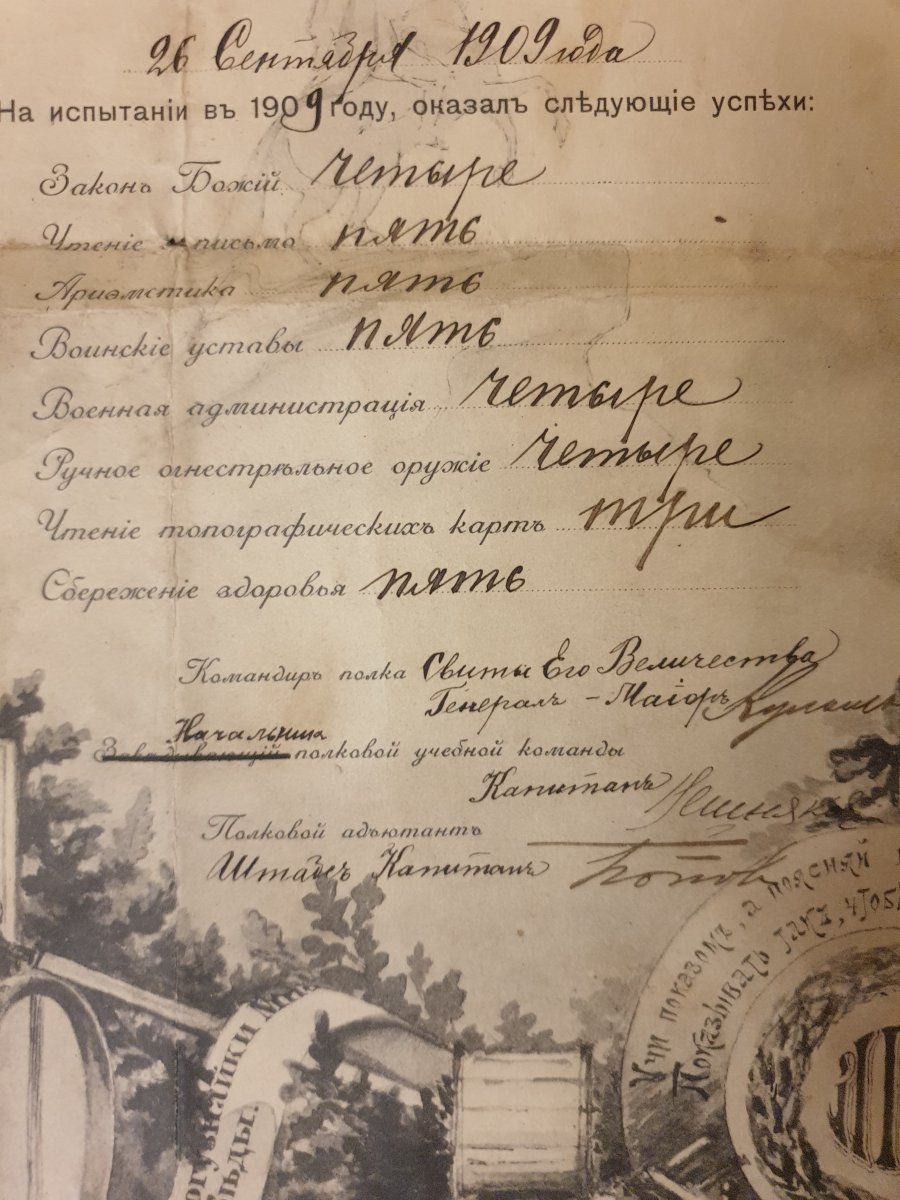 26 Сентября 1909 года
На испытаніи въ 1909 году, оказалъ слѣдующіе успѣхи:
Законъ Божій четыре
Чтеніе и письмо пять
Ариѳметика пять
Воинскіе уставы пять
Военная администрація четыре
Ручное огнестрѣльное оружіе четыре
Чтеніе топографическихъ картъ три
Сбереженіе здоровья пять
Командиръ полка Свиты Его Величества
Генералъ-Маіоръ
Начальникъ
Завѣдывающій полковой учебной команды
Капитанъ
Полковой адъютантъ
Штабсъ Капитанъ Поповъ
Учи показомъ, а поясняй
Показывать такъ, чтобы